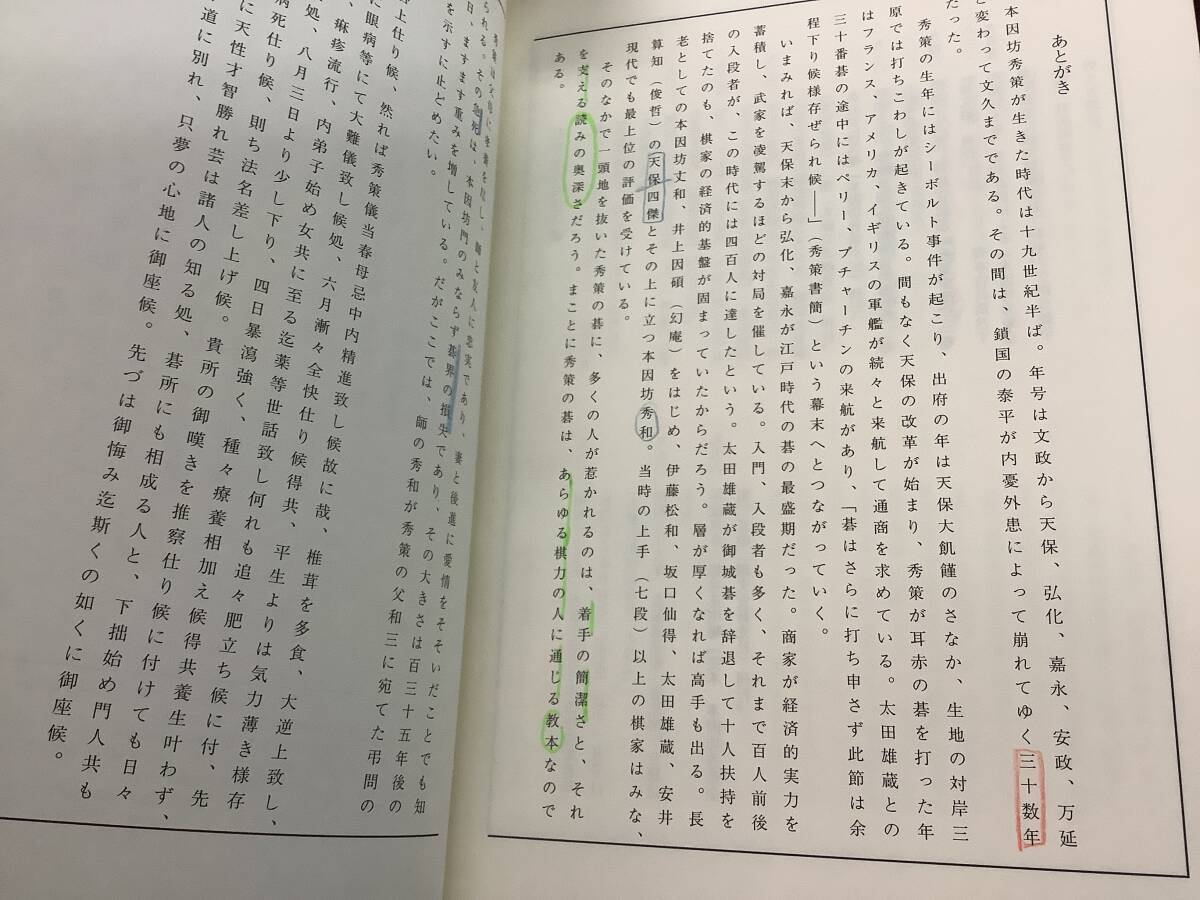 あとがき
本因坊秀策が生きた時代は十九世紀半ば。年号は文政から天保、弘化、嘉永、安政、万延
と変わって文久までである。その間は、鎖国の泰平が内憂外患によって崩れてゆく三十数年
だった。
秀策の生年にはシーボルト事件が起こり、出府の年は天保大飢饉のさなか、生地の対岸三
原では打ちこわしが起きている。間もなく天保の改革が始まり、秀策が耳赤の碁を打った年
はフランス、アメリカ、イギリスの軍艦が続々と来航して通商を求めている。太田雄蔵との
三十番碁の途中にはペリー、プチャーチンの来航があり、「碁はさらに打ち申さず此節は余
程下り候様存ぜられ候――」（秀策書簡）という幕末へとつながっていく。
いまみれば、天保末から弘化、嘉永が江戸時代の碁の最盛期だった。商家が経済的実力を
蓄積し、武家を凌駕するほどの対局を催している。入門、入段者も多く、それまで百人前後
の入段者が、この時代には四百人に達したという。太田雄蔵が御城碁を辞退して十人扶持を
捨てたのも、棋家の経済的基盤が固まっていたからだろう。層が厚くなれば高手も出る。長
老としての本因坊丈和、井上因碩（幻庵）をはじめ、伊藤松和、坂口仙得、太田雄蔵、安井
算知（俊哲）の天保四傑とその上に立つ本因坊秀和。当時の上手（七段）以上の棋家はみな、
現代でも最上位の評価を受けている。
そのなかで一頭地を抜いた秀策の碁に、多くの人が惹かれるのは、着手の簡潔さと、それ
を支える読みの奥深さだろう。まことに秀策の碁は、あらゆる棋力の人に通じる教本なので
ある。
師と友人に忠実であり、妻と後進に愛情をそそいだことでも知
られる。その急死は、本因坊門のみならず碁界の損失であり、その大きさは百三十五年後の
日、ますます重みを増している。だがここでは、師の秀和が秀策の父和三に宛てた弔問の
を示すに止どめたい。
上仕り候、然れば秀策儀当春母忌中内精進致し候故に哉、椎茸を多食、大逆上致し、
に眼病等にて大難儀致し候処、六月漸々全快仕り候得共、平生よりは気力薄き様存
、麻疹流行、内弟子始め女共に至る迄薬等世話致し何れも追々肥立ち候に付、先
処、八月三日より少し下り、四日暴瀉強く、種々療養相加え候得共養生叶わず、
病死仕り候、則ち法名差し上げ候。貴所の御嘆きを推察仕り候に付けても日々
に天性才智勝れ芸は諸人の知る処、碁所にも相成る人と、下拙始め門人共も
道に別れ、只夢の心地に御座候。先づは御悔み迄斯くの如くに御座候。